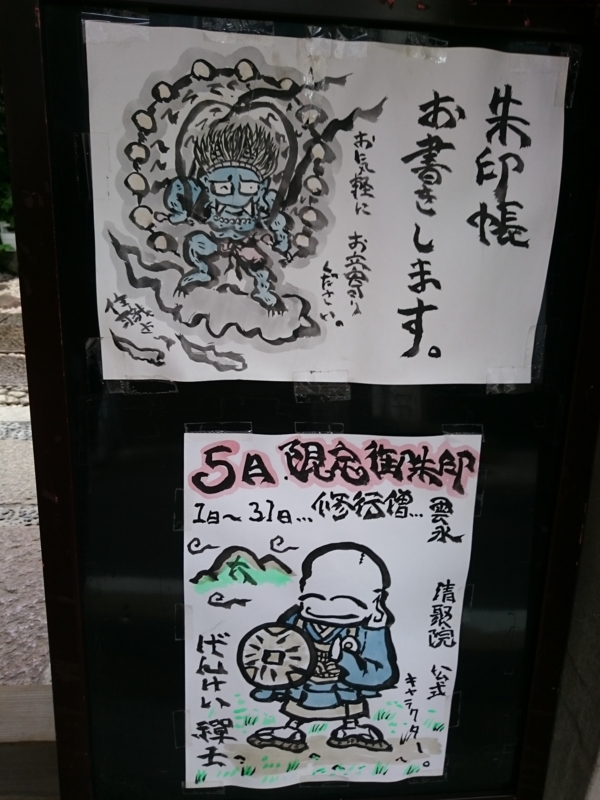 朱印帳
お書きします。
お気軽に
お立寄り
ください。
住職
5月限定御朱印
1日~31日...修行僧...
雲水
清聚院 公式
キャラクター。
げんせい禅士